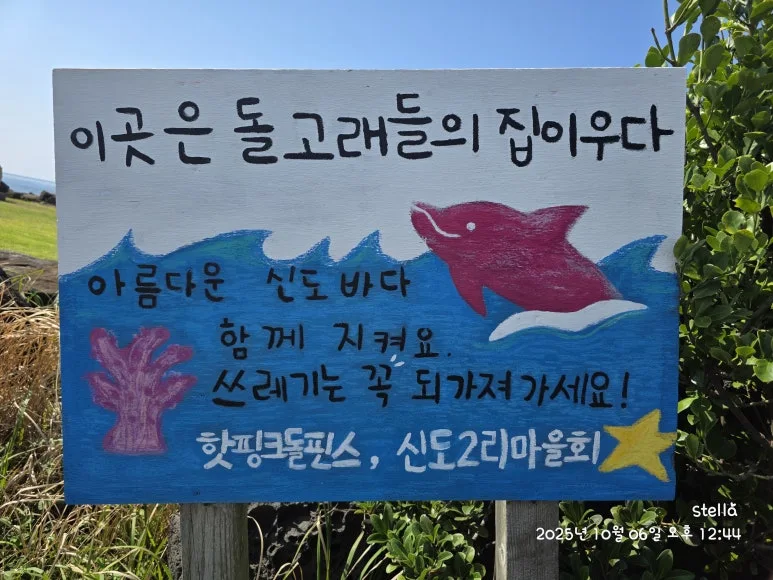 이곳은 돌고래들의 집이우다
아름다운 신도 바다
함께 지켜요.
쓰레기는 꼭 되가져가세요!
핫핑크돌핀스, 신도2리마을회
stella
2025년 10월 06일 오후 12:44